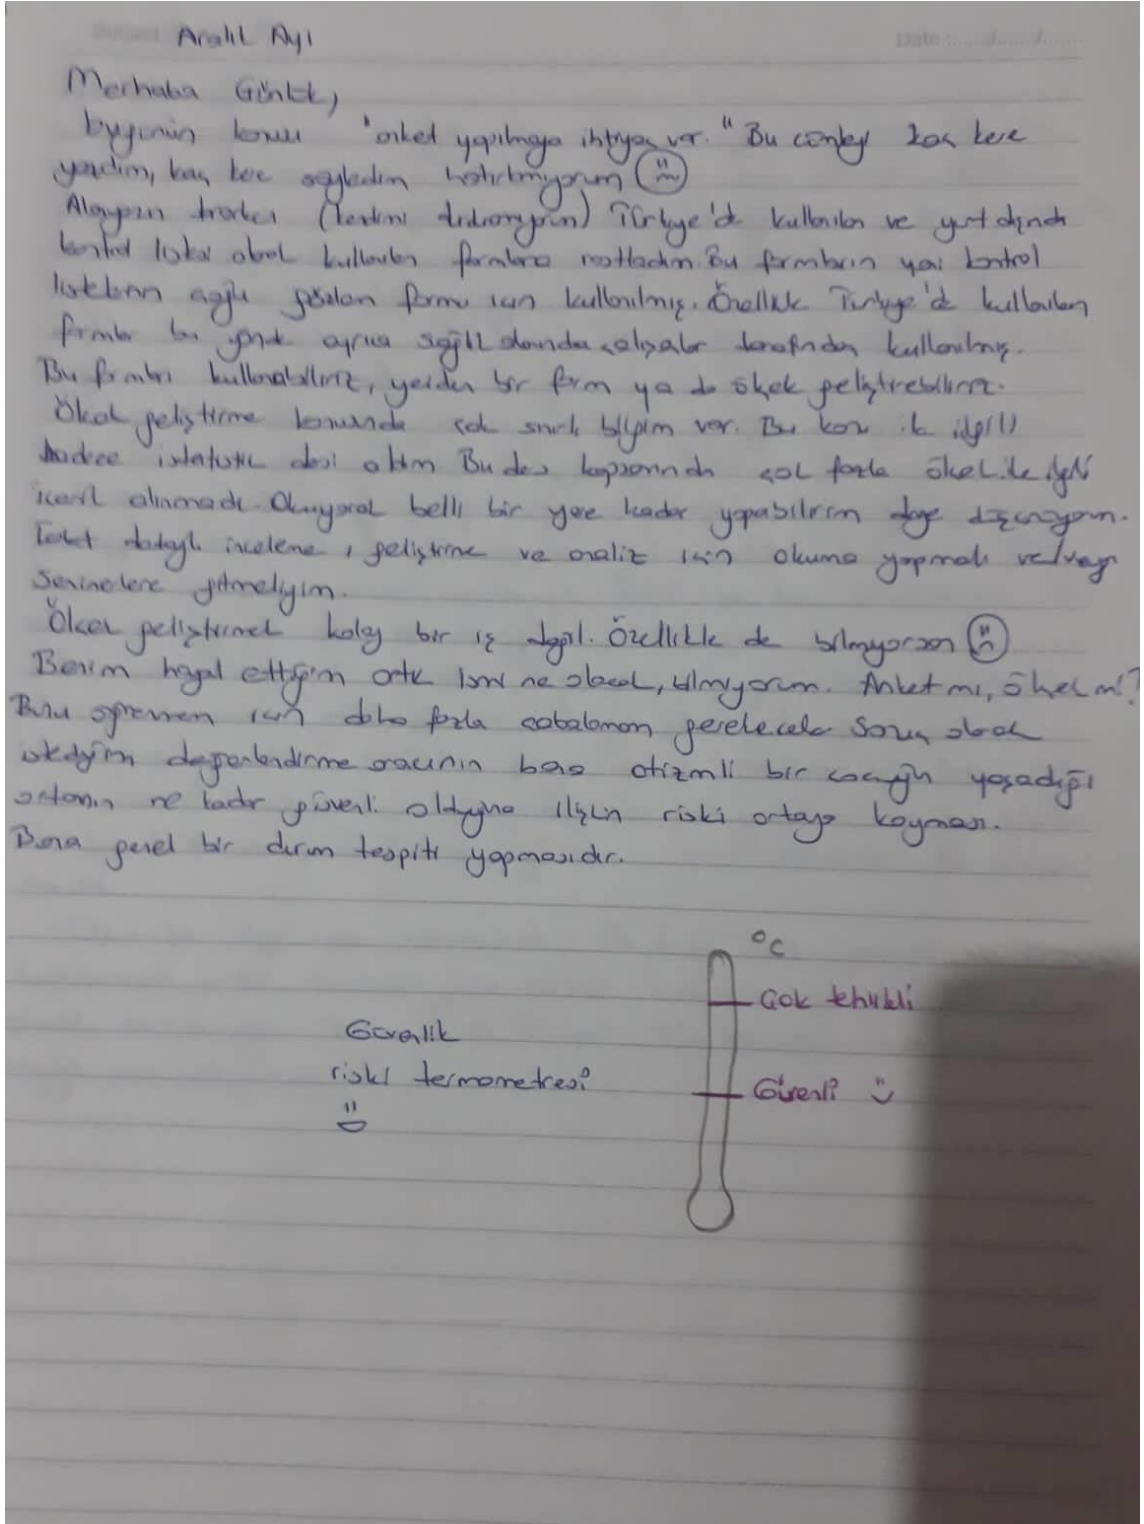 Aralık Ayı
Date :
Merhaba Günlük,
bugünün konusu "anket yapılmaya ihtiyaç var." Bu cümleyi kaç kere
yazdım, kaç kere söyledim hatırlamıyorum
(kendimi Türkiye'de kullanılan ve yurt dışında
kontrol listesi olarak kullanılan formlara rastladım. Bu formların yani kontrol
listelerin çoğu gözlem formu için kullanılmış. Özellikle Türkiye'de kullanılan
formlar bu yönde ayrıca sağlık alanında çalışanlar tarafından kullanılmış.
Bu formları kullanabiliriz, yeniden bir form ya da ölçek geliştirebiliriz.
Ölçek geliştirme konusunda çok sınırlı bilgim var. Bu konu ile ilgili
sadece istatistik dersi aldım Bu ders kapsamında çok fazla ölçek ile ilgili
içerik alınmadı. Okuyarak belli bir yere kadar yapabilirim diye düşünüyorum.
Fakat detaylı inceleme, geliştirme ve analiz için okuma yapmalı ve/veya
seminerlere gitmeliyim.
Ölçek geliştirmek kolay bir iş değil. Özellikle de bilmiyorsan
Benim hayal ettiğim ismi ne olacak, bilmiyorum. Anket mi, ölçek mi?
Bunu öğrenmem için daha fazla çabalamam gerekecek. Sonuç olarak
istediğim değerlendirme aracının bana otizmli bir çocuğun yaşadığı
ortamın ne kadar güvenli olduğuna ilişkin riski ortaya koyması.
Bana genel bir durum tespiti yapmasıdır.
°C
Çok tehlikeli
Güvenlik
riski termometresi
Güvenli